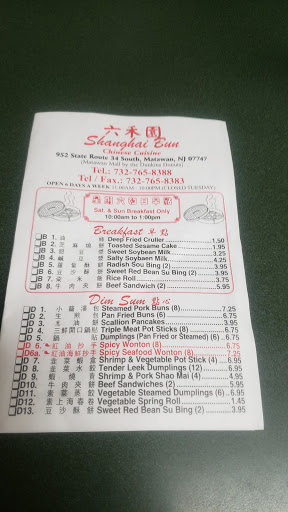 六禾園
Shanghai Bun
Chinese Cuisine
952 State Route 34 South, Matawan, NJ 07747
(Matawan Mall by the Dunkin Donuts)
Tel.: 732-765-8388
Tel / Fax.: 732-765-8383
OPEN 6 DAYS A WEEK 11:00AM - 10:00PM (CLOSED TUESDAY)
Sat. & Sun Breakfast Only
10:00am to 1:00pm
Breakfast 早點
B 1. 油條 Deep Fried Cruller 1.50
B 2. 芝麻燒餅 Toasted Sesame Cake 1.95
B 3. 甜豆漿 Sweet Soybean Milk 3.25
B 4. 鹹豆漿 Salty Soybean Milk 4.25
B 5. 蘿蔔酥餅 Radish Sou Bing (2) 3.95
B 6. 豆沙酥餅 Sweet Red Bean Su Bing (2) 3.95
B 7. 粢米飯 Rice Roll 3.75
B 8. 牛肉夾餅 Beef Sandwich (2) 5.95
Dim Sum 點心
D 1. 小籠湯包 Steamed Pork Buns (8) 7.25
D 2. 生煎包 Pan Fried Buns (6) 6.75
D 3. 葱油餅 Scallion Pancakes 3.95
D 4. 三鮮窩口鍋貼 Triple Meat Pot Sticks (8) 8.75
D 5. 鍋貼 Dumplings (Pan Fried or Steamed) (6) 6.75
D 6. 紅油抄手 Spicy Wonton (8) 6.75
D6a. 紅油海鮮抄手 Spicy Seafood Wonton (8) 7.25
D 7. 韭菜蝦盒 Shrimp & Vegetable Pot Stick (4) 5.95
D 8. 韭菜水餃 Tender Leek Dumplings (12) 8.95
D 9. 蝦燒賣 Shrimp & Pork Shao Mai (4) 4.95
D10. 牛肉夾餅 Beef Sandwiches (2) 5.95
D11. 素菜蒸餃 Vegetable Steamed Dumplings (6) 6.95
D12. 素上海春卷 Vegetable Spring Roll 1.45
D13. 豆沙酥餅 Sweet Red Bean Su Bing (2) 3.95